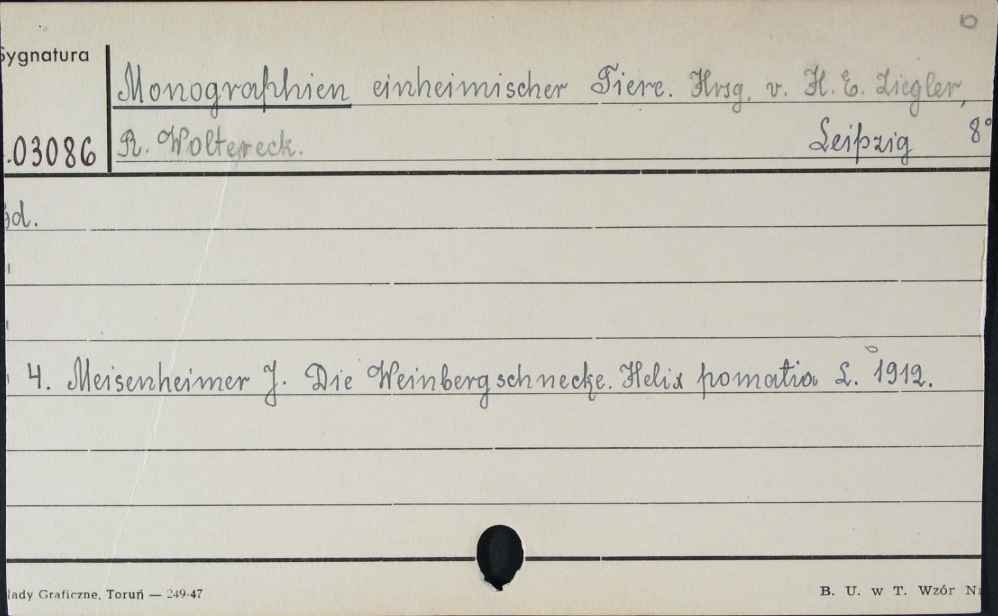 Sygnatura
Monographien einheimischer Tiere. Hrsg. v. H. E. Ziegler,
03086 R. Woltereck. Leipzig 8°
4. Meisenheimer J. Die Weinbergschnecke. Helix pomatia L. 1912.
Graficzne, Toruń — 249-47 B. U. w T. Wzór